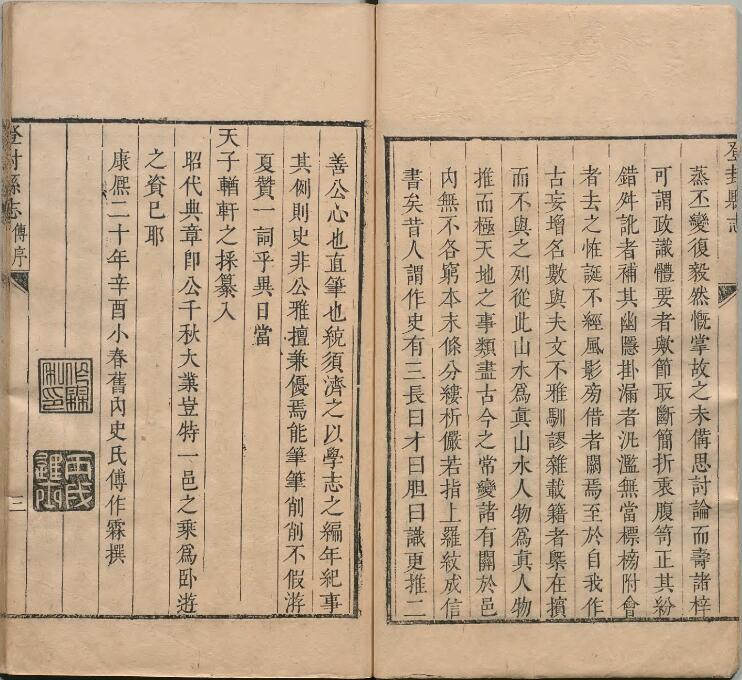 登封縣志
蒸丕變復毅然慨掌故之未備思討論而壽諸梓
可謂政識體要者歟節取斷簡折衷腹笥正其紛
錯舛訛者補其幽隱掛漏者汎濫無當標榜附會
者去之恠誕不經風影旁借者闕焉至於自我作
古妄增名數與夫文不雅馴謬雜載籍者槩在擯
而不與之列從此山水為真山水人物為真人物
推而極天地之事類盡古今之常變諸有關於邑
內無不各窮本末條分縷析儼若指上羅紋成信
書矣昔人謂作史有三長曰才曰胆曰識更推二
善公心也直筆也統須濟之以學志之編年紀事
其例則史非公雅擅兼優焉能筆筆削削不假游
夏贊一詞乎異日當
天子輶軒之採纂入
昭代典章卽公千秋大業豈特一邑之乘為卧遊
之資已耶
康熈二十年辛酉小春舊內史氏傅作霖撰
登封縣志
傅序
三